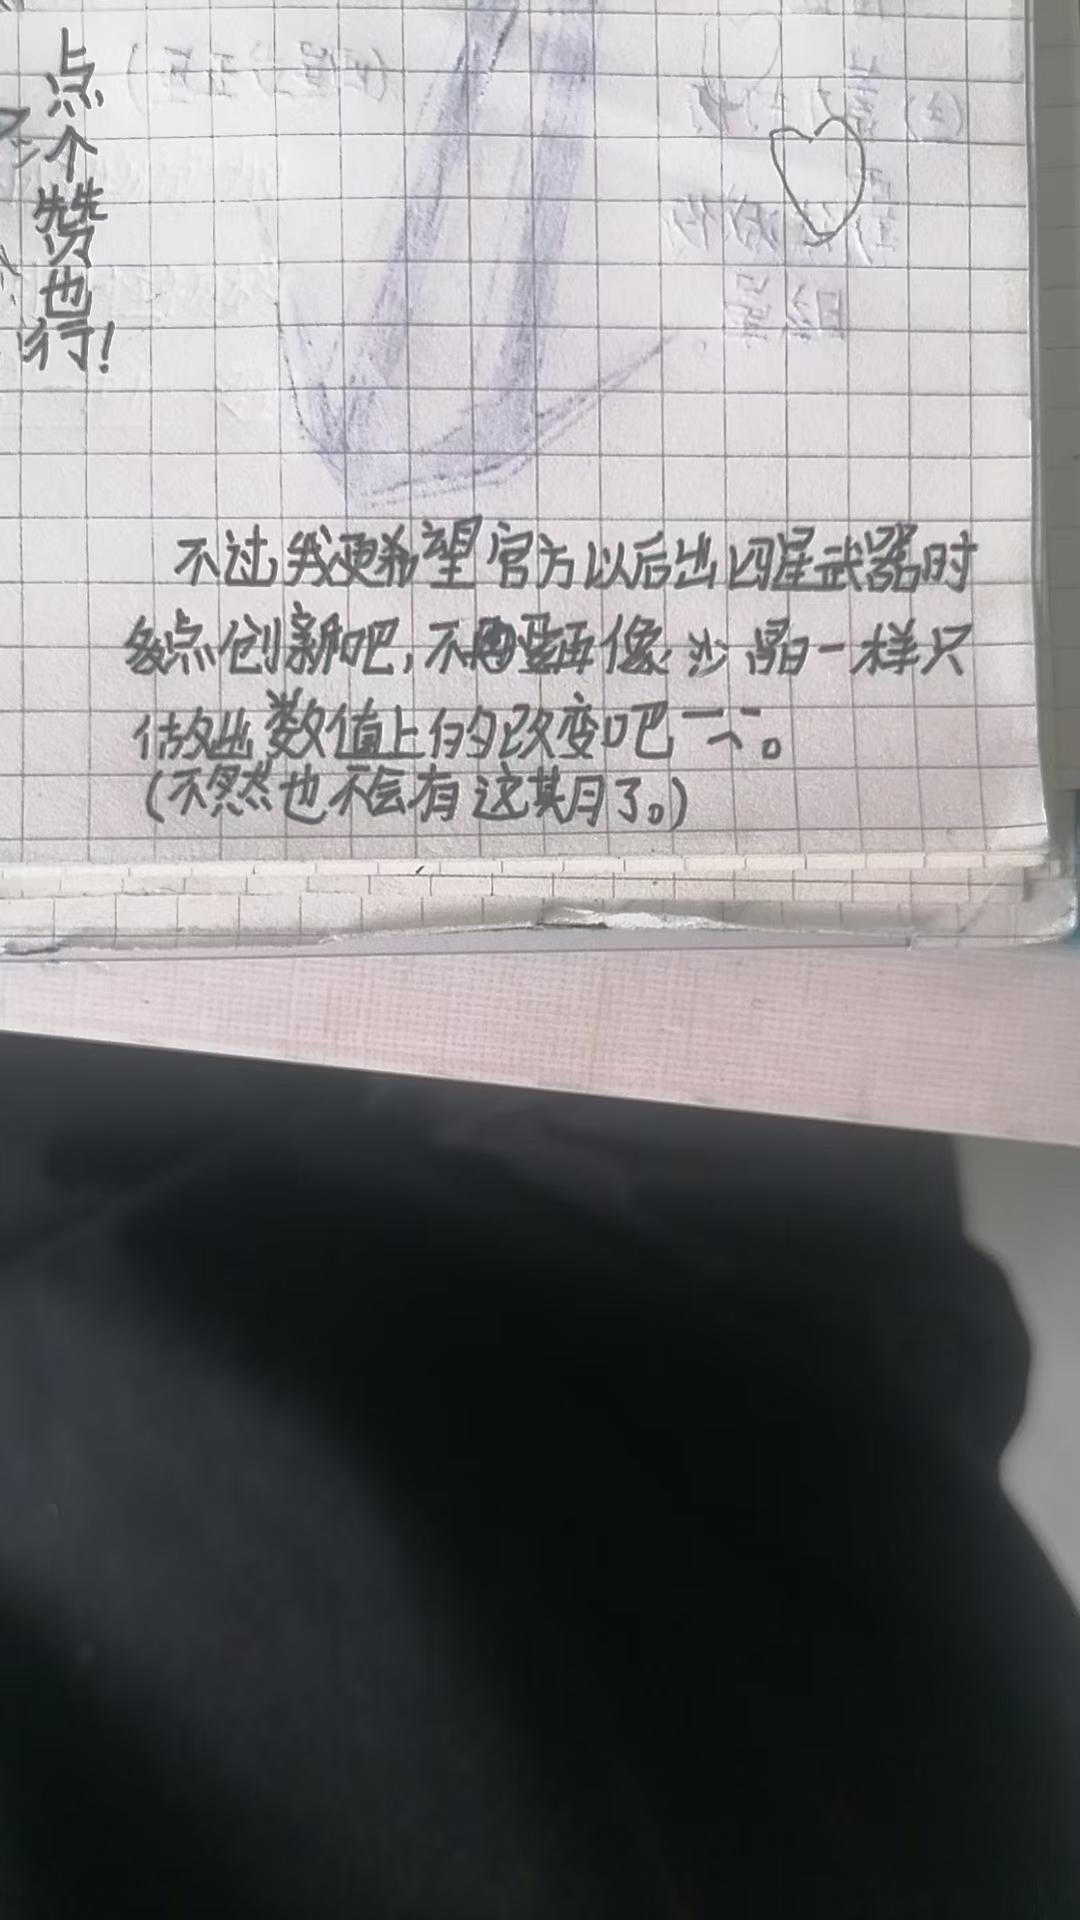 点个赞也行!
不过我更希望官方以后出四星武器时
多点创新吧,不要再像沙晶一样只
做出数值上的改变吧
(不然也不会有这其月了。)